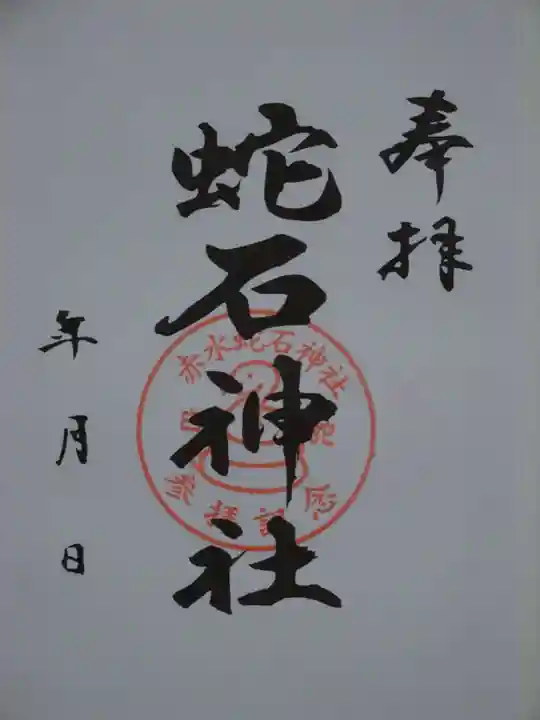 奉拝
蛇石神社
赤水蛇石神社
白蛇
参拝記念
年月日